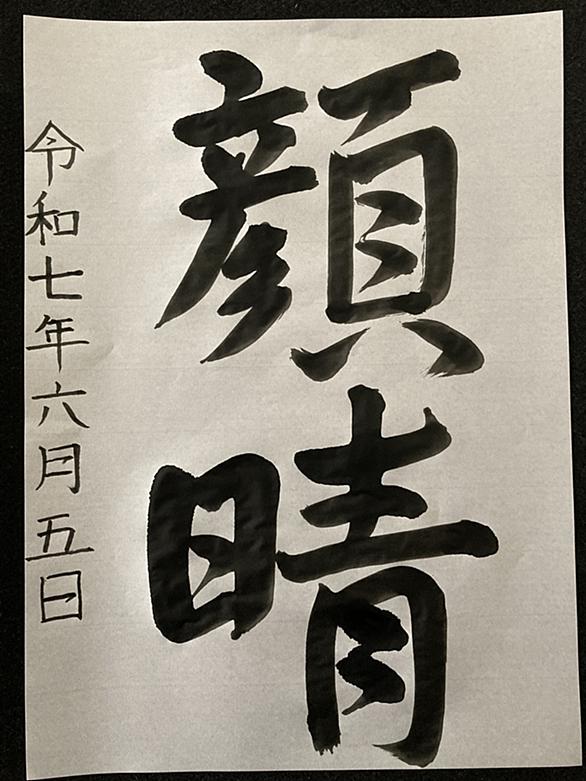 顔晴
令和七年六月五日